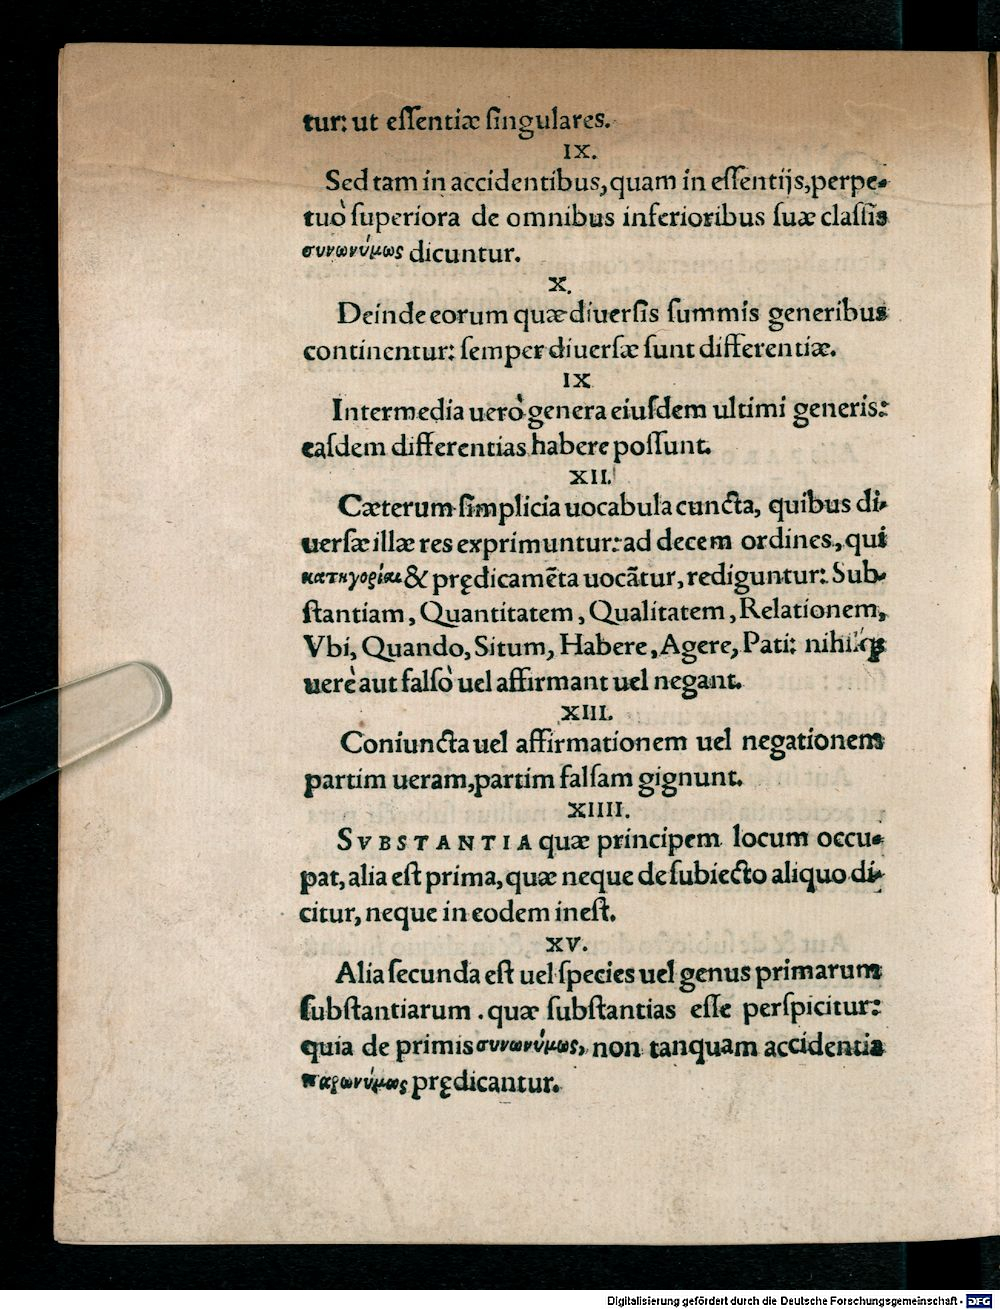 tur: ut eſſentiæ ſingulares.
IX.
Sed tam in accidentibus, quam in eſſentijs, perpe-
tuò ſuperiora de omnibus inferioribus ſuæ claſſis
συνωνύμως dicuntur.
X.
Deinde eorum quæ diuerſis ſummis generibus
continentur: ſemper diuerſæ ſunt differentiæ.
IX
Intermedia uerò genera eiuſdem ultimi generis:
eaſdem differentias habere poſſunt.
XII.
Cæterum ſimplicia uocabula cuncta, quibus di-
uerſæ illæ res exprimuntur: ad decem ordines, qui
κατηγορίαι & prędicamẽta uocãtur, rediguntur: Sub-
ſtantiam, Quantitatem, Qualitatem, Relationem,
Vbi, Quando, Situm, Habere, Agere, Pati: nihilq́ꝫ
uerè aut falſò uel affirmant uel negant.
XIII.
Coniuncta uel affirmationem uel negationem
partim ueram, partim falſam gignunt.
XIIII.
SVBSTANTIA quæ principem locum occu-
pat, alia eſt prima, quæ neque de ſubiecto aliquo di-
citur, neque in eodem ineſt.
XV.
Alia ſecunda eſt uel ſpecies uel genus primarum
ſubſtantiarum. quæ ſubſtantias eſſe perſpicitur:
quia de primis συνωνύμως, non tanquam accidentia
παρωνύμως prędicantur.
Digitalisierung gefördert durch die Deutsche Forschungsgemeinschaft - DFG